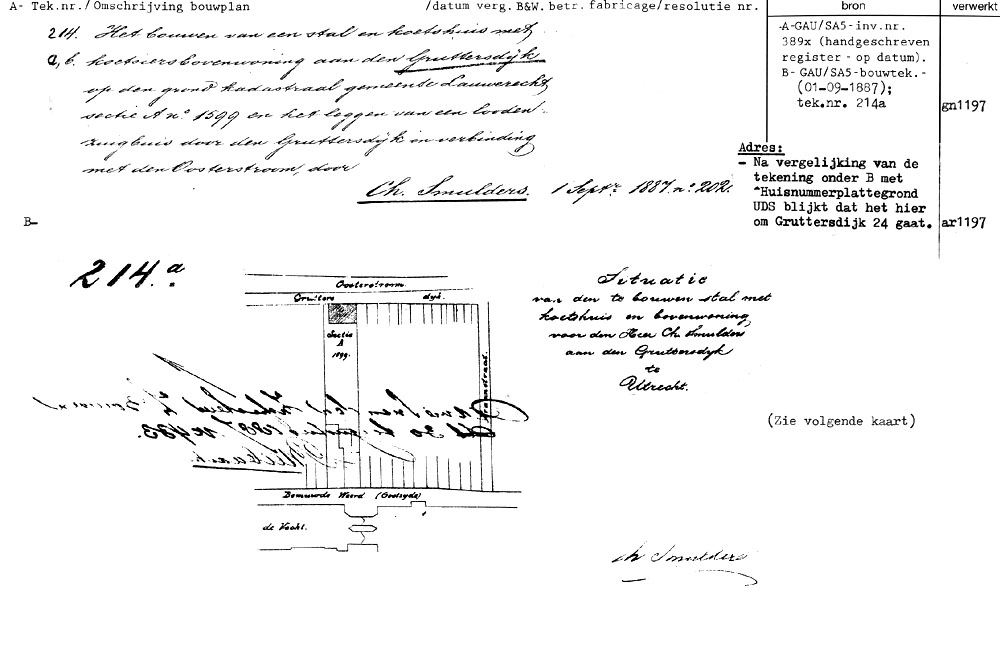 A- Tek.nr./Omschrijving bouwplan /datum verg. B&W. betr. fabricage/resolutie nr. bron verwerkt
214. Het bouwen van een stal en koetshuis met
a, b. koetsiersbovenwoning aan den Gruttersdijk
op den grond kadastraal gemeente Lauwerecht
sectie A nº 1599 en het leggen van een looden
zuigbuis door den Gruttersdijk in verbinding
met den Oosterstroom, door
Ch. Smulders. 1 Septr. 1887. nº 202.
-A-GAU/SA5-inv.nr.
389x (handgeschreven
register - op datum).
B- GAU/SA5-bouwtek.-
(01-09-1887);
tek.nr. 214a
gn1197
Adres:
- Na vergelijking van de
tekening onder B met
"Huisnummerplattegrond
UDS blijkt dat het hier
om Gruttersdijk 24 gaat.
ar1197
B-
214.a
Oosterstroom.
Grutters dyk.
Sectie
A
1599.
Bemuurde Weerd (Oostzyde)
de Vecht.
Situatie
van den te bouwen stal met
koetshuis en bovenwoning
voor den Heer Ch. Smulders
aan den Gruttersdyk
te
Utrecht.
(Zie volgende kaart)
Ch Smulders